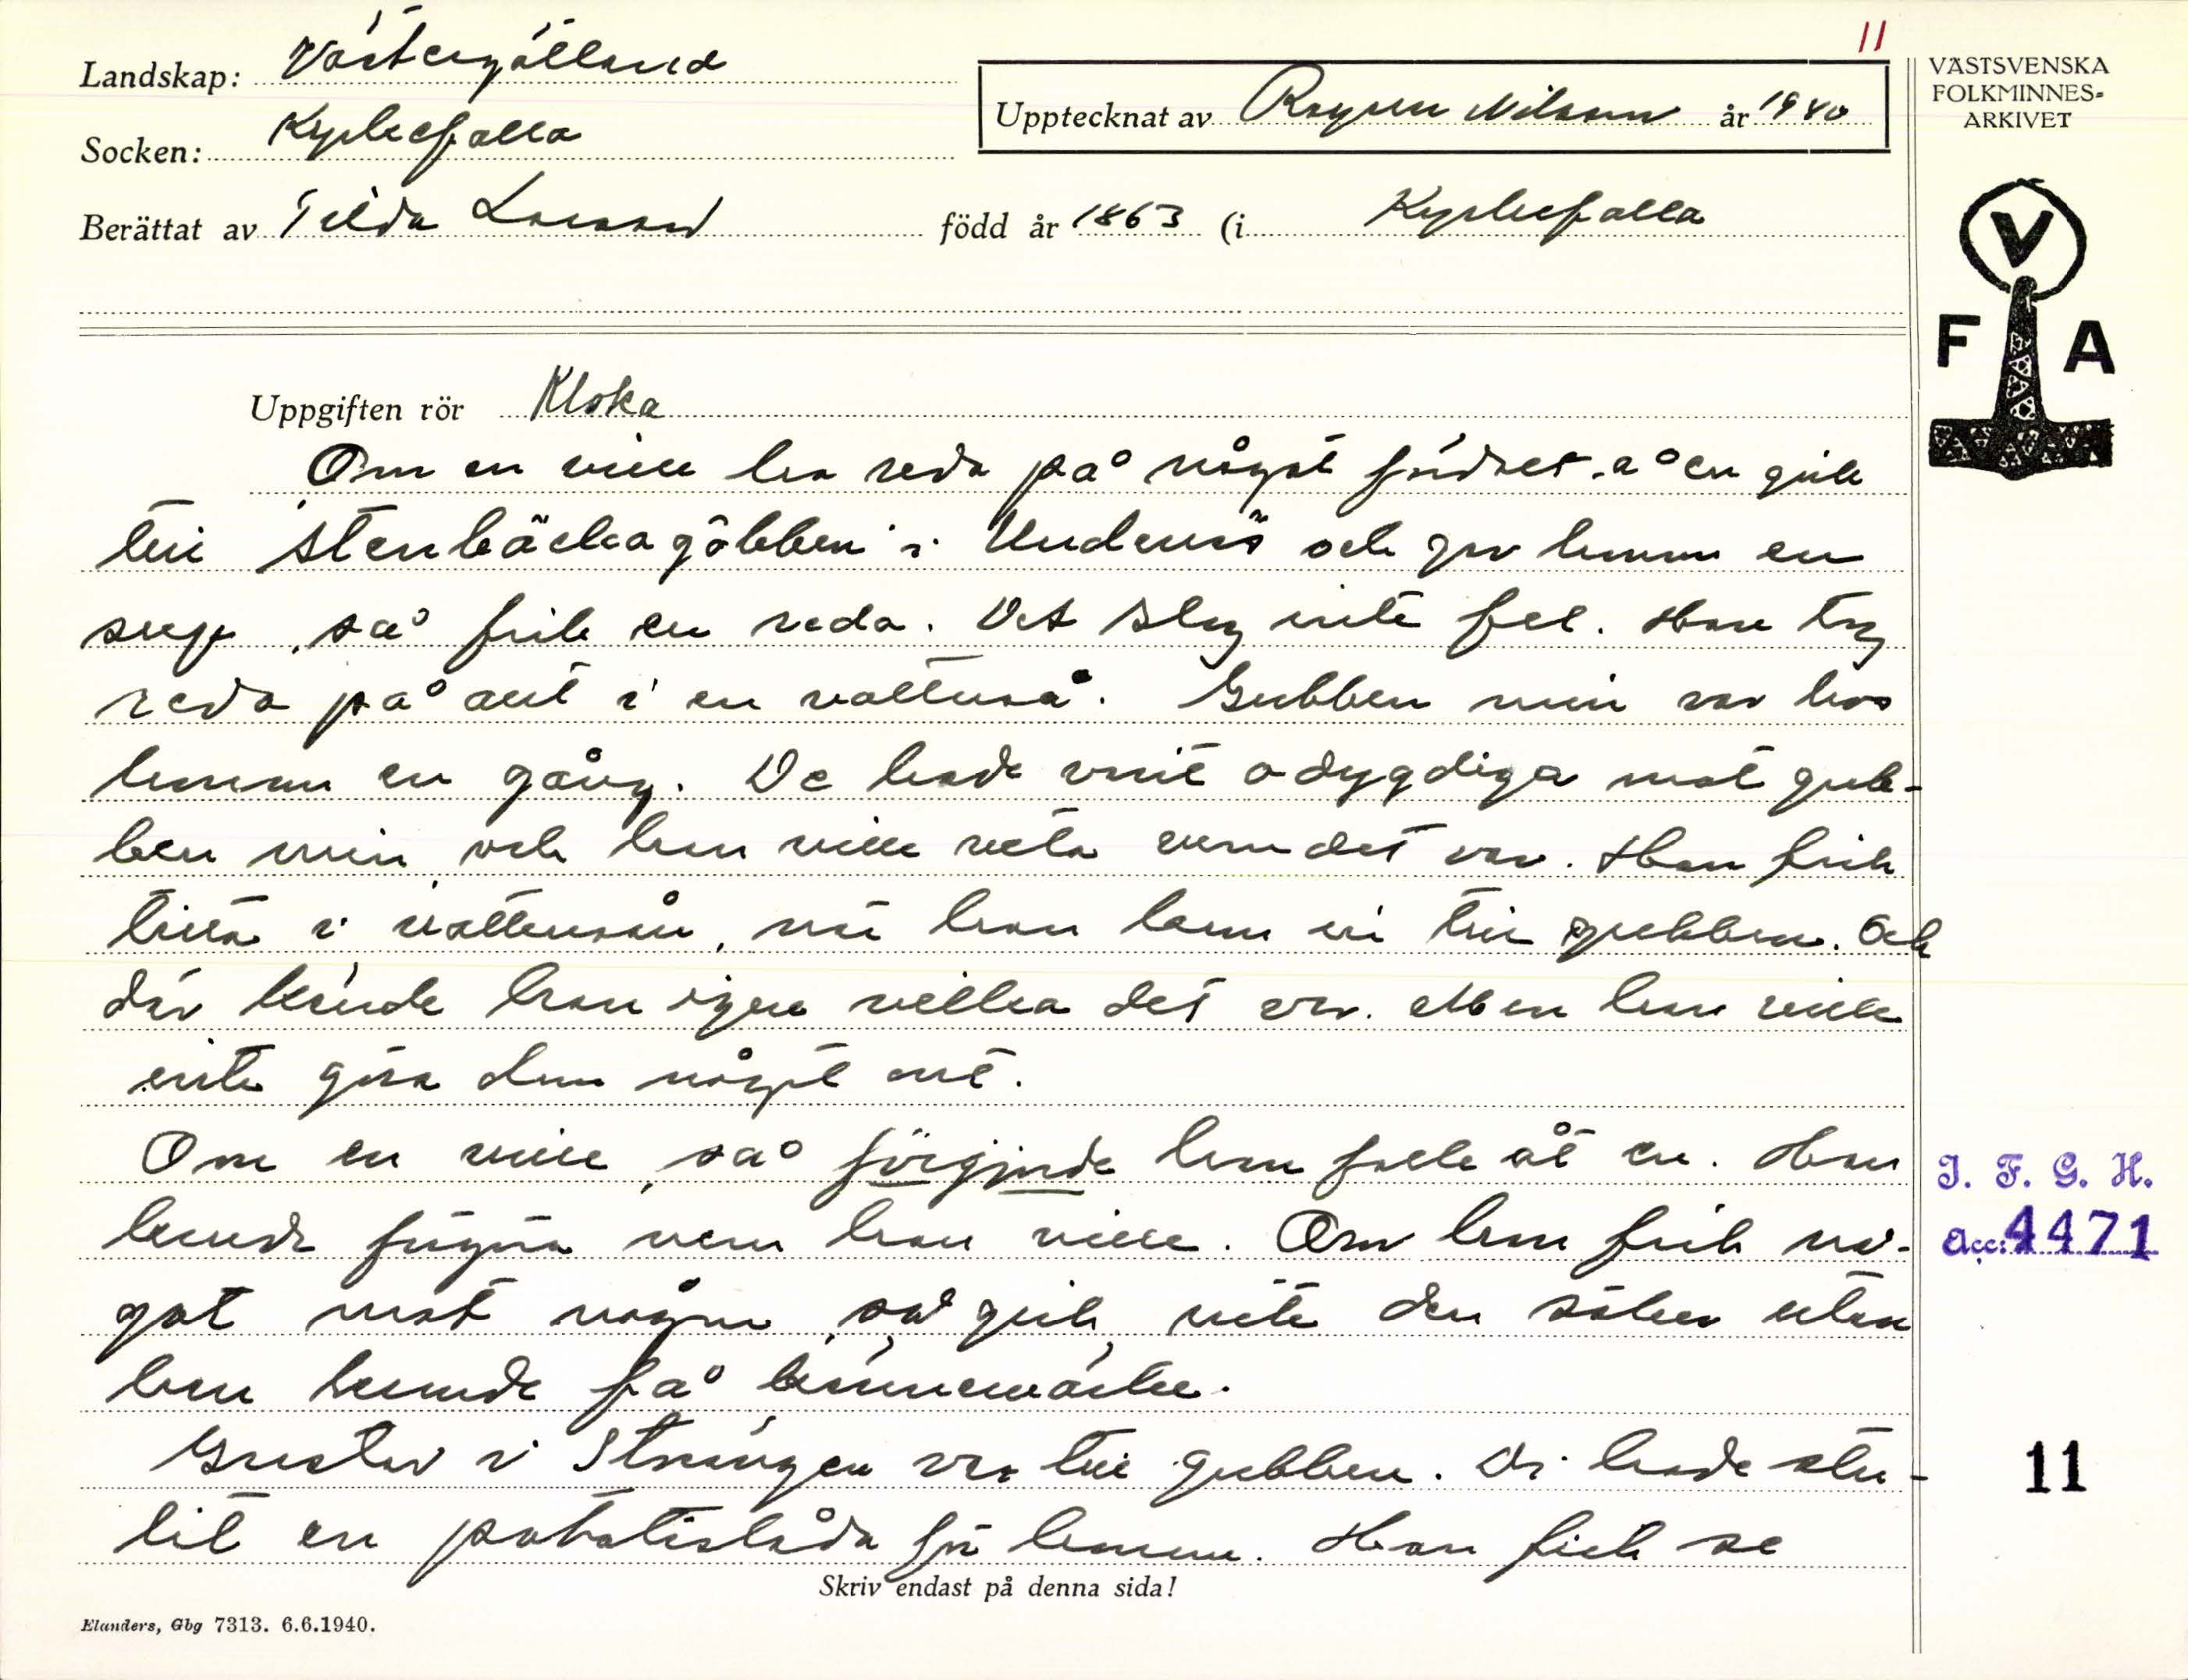 11
Landskap: Västergötland
Socken: Kyrkefalla
Upptecknat av Ragnar Nilsson år 1940
Berättat av Tilda Larsson född år 1863 (i Kyrkefalla
VÄSTSVENSKA
FOLKMINNES-
ARKIVET
V
F A
Uppgiften rör Kloka
Om en ville ha reda på något å en gick
till Stenbäckagöbben i Undenäs och gav honom en
sup, så fick en reda. Det slog inte fel. Han tog
reda på allt i en vattenså. Gubben min var hos
honom en gång. De hade vart odygdiga mot gub-
ben min och han ville veta vem det var. Han fick
titta i vattensån, när han kom in till gubben. Och
där kände han igen vilka det var. Men han ville
inte göra dem något ont.
Om en ville, så förgjorde han folk åt en. Han
kunde förgöra vem han ville. Om han fick nå-
got mot någon, så gick inte den säker utan
han kunde få kännemärke.
Gustav i Strängen var till gubben. Di hade stu-
lit en potatislåda för honom. Han fick se
Skriv endast på denna sida!
Elanders, Gbg 7313. 6.6.1940.
I. F. G. H.
Acc: 4471
11